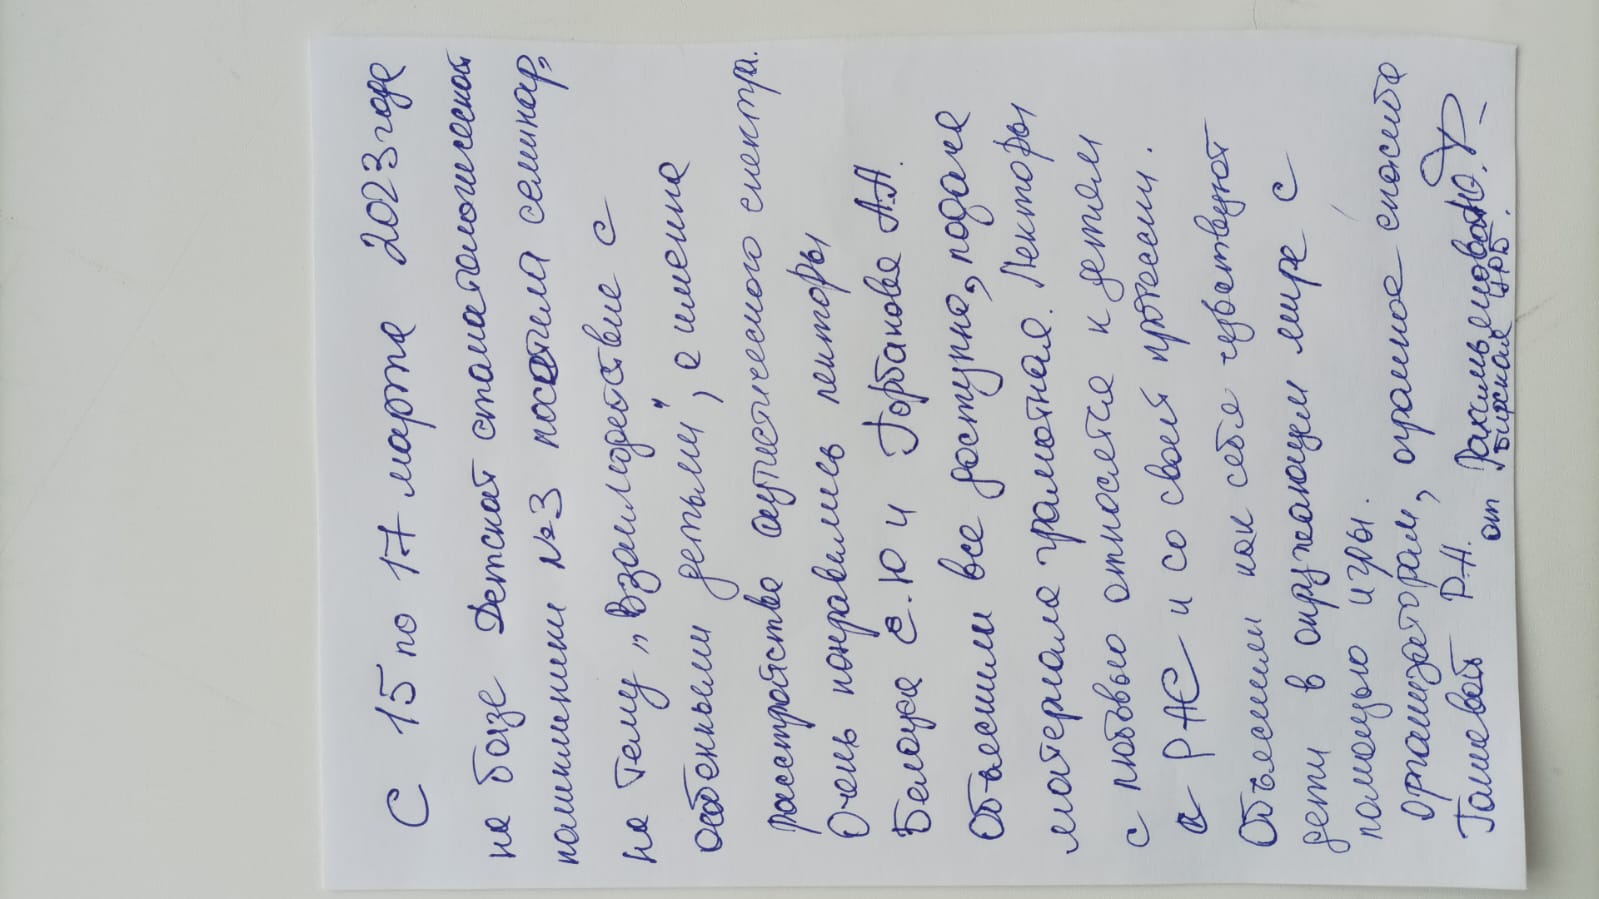 С 15 по 17 марта 2023 года
на базе Детской стоматологической
поликлиники №3 посетила семинар,
на тему „Взаимодействие с
особенными детьми", а именно
расстройства аутистического спектра.
Очень понравились лекторы
Белоус Е.Ю и Горбакова А.А.
Объяснили все доступно, подача
материала грамотная. Лекторы
с любовью относятся к детям
с РАС и со своей профессии.
Объяснили как себя чувствуют
дети в окружающем мире с
помощью игры.
Организаторам, огромное спасибо
Р.Н. Ю.
от Бирская ЦРБ.